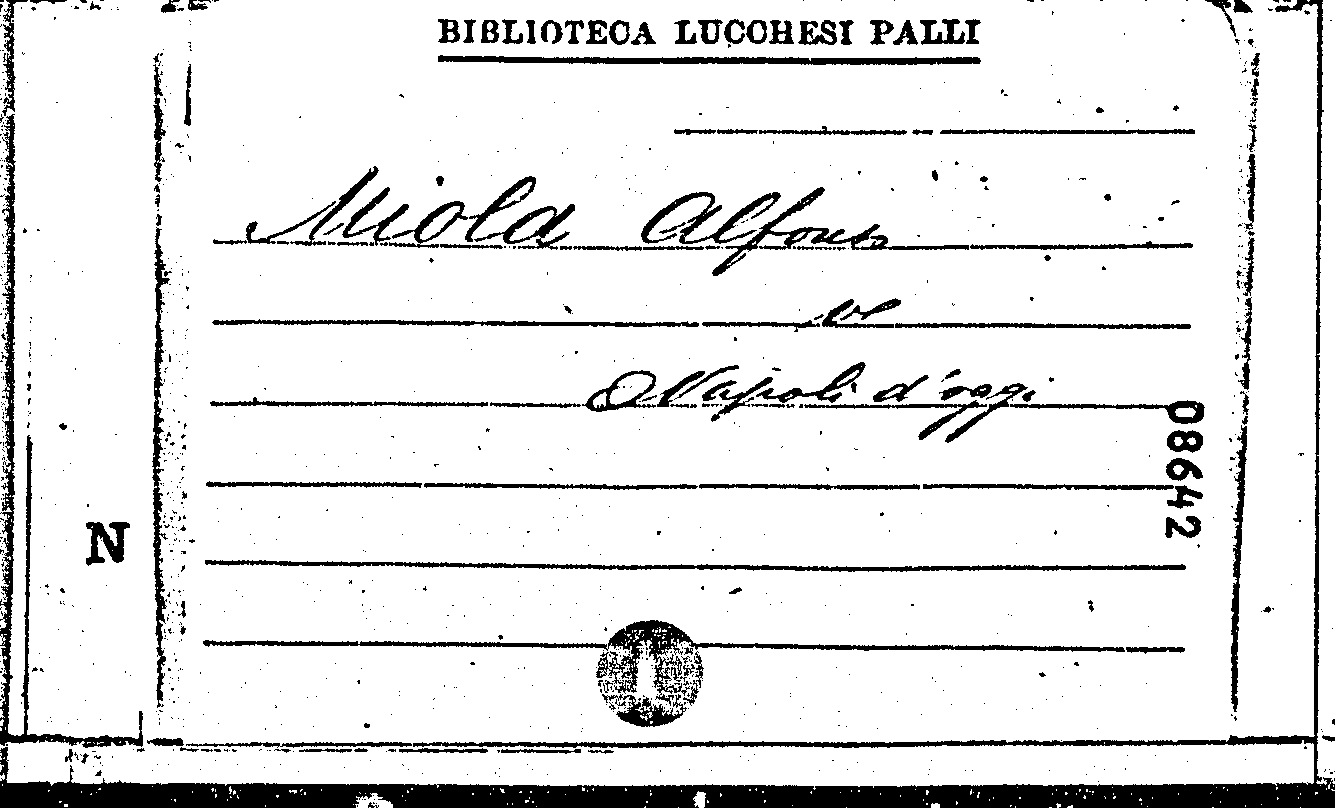 BIBLIOTECA LUCCHESI PALLI
Miola Alfonso
ve
Napoli d'oggi
08642
N